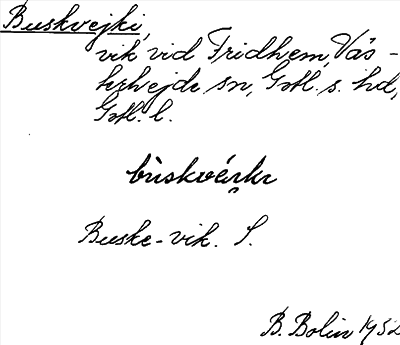 Buskvejki,
vik vid Fridhem, Väs-
terhejde sn, Gotl. s. hd,
Gotl. l.
Buske-vik. S.
B. Bolin 1932